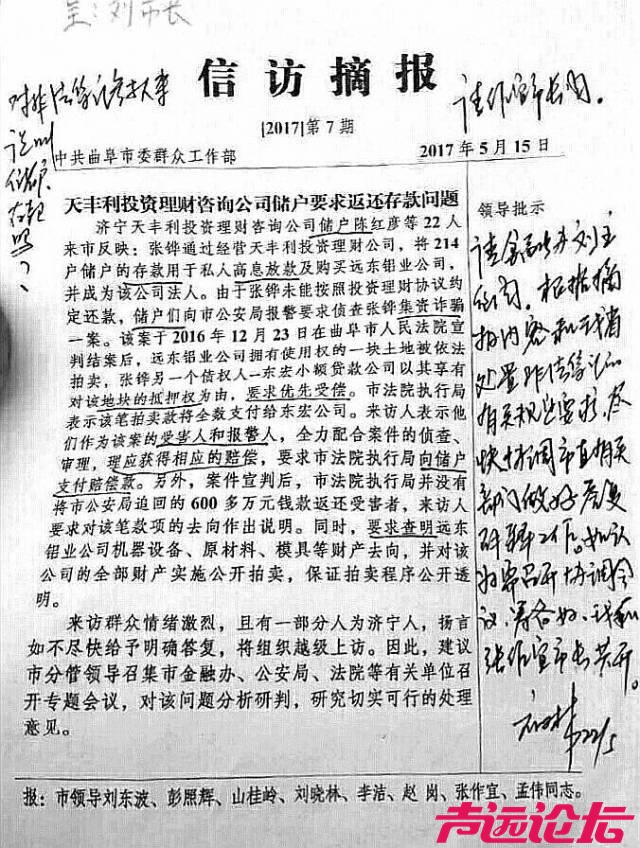 呈：刘市长
信访摘报
[2017]第7期
中共曲阜市委群众工作部
2017年5月15日
请作宜市长阅。
天丰利投资理财咨询公司储户要求返还存款问题
济宁天丰利投资理财咨询公司储户陈红彦等22人
来市反映：张铧通过经营天丰利投资理财公司，将214
户储户的存款用于私人高息放款及购买远东铝业公司，
并成为该公司法人。由于张铧未能按照投资理财协议约
定还款，储户们向市公安局报警要求侦查张铧集资诈骗
一案。该案于2016年12月23日在曲阜市人民法院宣
判结案后，远东铝业公司拥有使用权的一块土地被依法
拍卖，张铧另一个债权人—东宏小额贷款公司以其享有
对该地块的抵押权为由，要求优先受偿。市法院执行局
表示该笔拍卖款将全数支付给东宏公司。来访人表示他
们作为该案的受害人和报警人，全力配合案件的侦查、
审理，理应获得相应的赔偿，要求市法院执行局向储户
支付赔偿款。另外，案件宣判后，市法院执行局并没有
将市公安局追回的600多万元钱款返还受害者，来访人
要求对该笔款项的去向作出说明。同时，要求查明远东
铝业公司机器设备、原材料、模具等财产去向，并对该
公司的全部财产实施公开拍卖，保证拍卖程序公开透
明。
来访群众情绪激烈，且有一部分人为济宁人，扬言
如不尽快给予明确答复，将组织越级上访。因此，建议
市分管领导召集市金融办、公安局、法院等有关单位召
开专题会议，对该问题分析研判，研究切实可行的处理
意见。
领导批示
请金融办刘主
任阅。根据摘
报内容和我省
处置非法集资的
有关规定要求，尽
快协调市直有关
部门做好
研判工作。如认
为需召开协调会
议，筹备好，我和
张作宜市长共开。
22/5
报：市领导刘东波、彭照辉、山桂岭、刘晓林、李洁、赵岗、张作宜、孟伟同志。
声远论坛